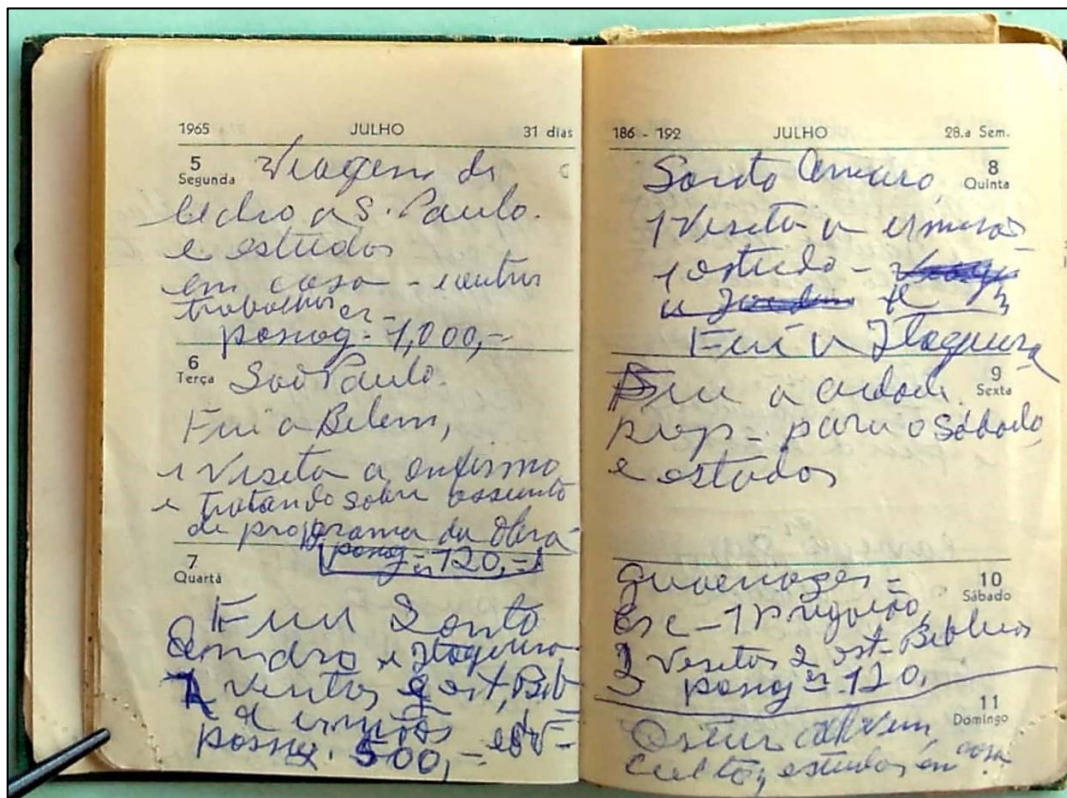 1965 JULHO 31 dias
5
Segunda
Viagem de
a S. Paulo.
e estudos
em casa - e outros
trabalhos
passag- 1,000,-
6
Terça
São Paulo.
Fui a Belem,
1 Visita a enfermo
e tratando sobre assunto
de programa da Obra-
passg = 120,-
7
Quarta
Fui Santo
e Itaquera
visitas 2 est, Bib
passg. 500,-
186 - 192 JULHO 28.a Sem.
8
Quinta
Santo Amaro
1 Visita a irmãos
1 estudo -
Fui a Itaquera
9
Sexta
Fui a cidade.
prep- para o Sábado
e estudos
10
Sábado
Guaenazes-
Esc- 1 Pregação,
3 Visitas 2 est- Biblicos
passg = 120,
11
Domingo
culto, estudos em casa